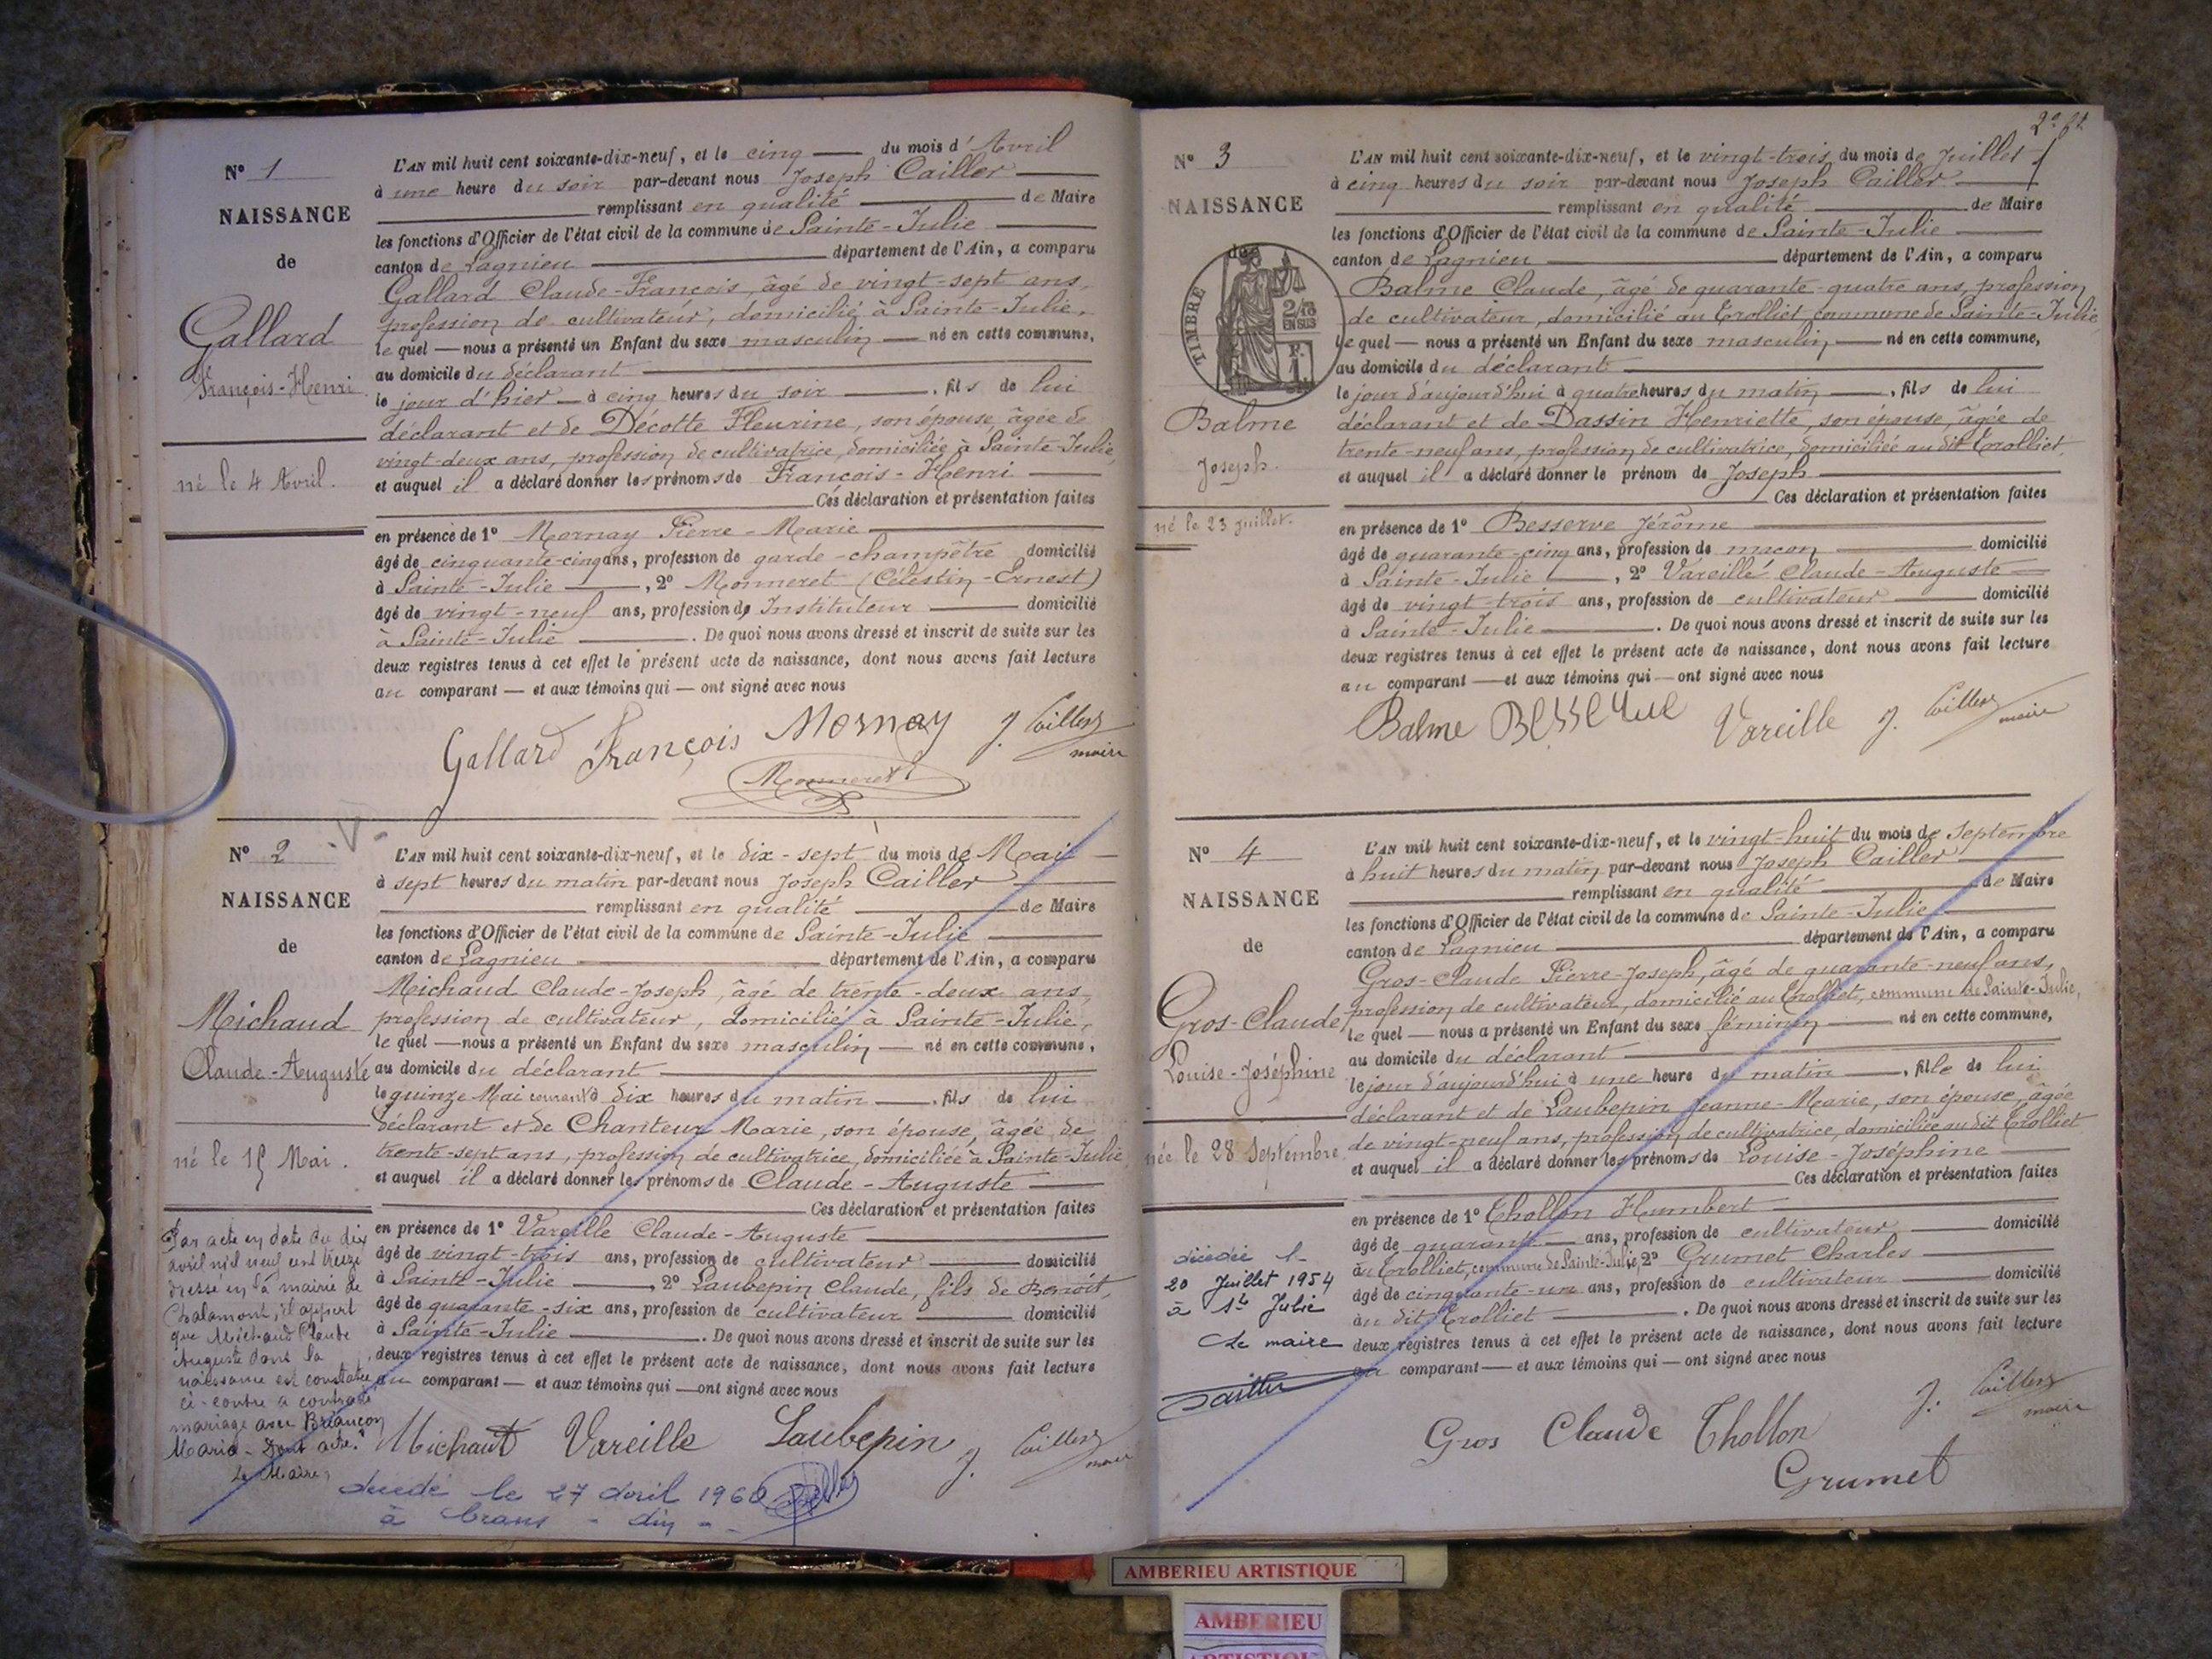 N° 1
NAISSANCE
de
Gallard
François-Henri
né le 4 Avril.
L'AN mil huit cent soixante-dix-neuf, et le cinq du mois d'Avril
à une heure du soir par-devant nous Joseph Cailler
remplissant en qualité de Maire
les fonctions d'Officier de l'état civil de la commune de Sainte-Julie
canton de Lagnieu département de l'Ain, a comparu
Gallard Claude-François, âgé de vingt-sept ans,
profession de cultivateur, domicilié à Sainte-Julie,
le quel nous a présenté un Enfant du sexe masculin né en cette commune,
au domicile du déclarant
le jour d'hier à cinq heures du soir, fils de lui
déclarant et de Décotte Fleurine, son épouse, âgée de
vingt-deux ans, profession de cultivatrice, domiciliée à Sainte-Julie,
et auquel il a déclaré donner les prénoms de François-Henri
Ces déclaration et présentation faites
en présence de 1° Mornay Pierre-Marie
âgé de cinquante-cinq ans, profession de garde-champêtre domicilié
à Sainte-Julie, 2° Monneret (Célestin-Ernest)
âgé de vingt-neuf ans, profession de Instituteur domicilié
à Sainte-Julie. De quoi nous avons dressé et inscrit de suite sur les
deux registres tenus à cet effet le présent acte de naissance, dont nous avons fait lecture
au comparant et aux témoins qui ont signé avec nous
Gallard François Mornay J. Cailler
maire
Monneret
N° 2
NAISSANCE
de
Michaud
Claude-Auguste
né le 15 Mai.
Par acte en date du dix
avril mil neuf cent treize
dressé en la mairie de
Chalamont, il appert
que Michaud Claude
Auguste dont la
naissance est constatée
ci-contre a contracté
mariage avec Briançon
Maria - Dont acte.
Le Maire,
L'AN mil huit cent soixante-dix-neuf, et le dix-sept du mois de Mai
à sept heures du matin par-devant nous Joseph Cailler
remplissant en qualité de Maire
les fonctions d'Officier de l'état civil de la commune de Sainte-Julie
canton de Lagnieu département de l'Ain, a comparu
Michaud Claude-Joseph, âgé de trente-deux ans,
profession de cultivateur, domicilié à Sainte-Julie,
le quel nous a présenté un Enfant du sexe masculin né en cette commune,
au domicile du déclarant
le quinze Mai courant à dix heures du matin, fils de lui
déclarant et de Chanteur Marie, son épouse, âgée de
trente-sept ans, profession de cultivatrice, domiciliée à Sainte-Julie
et auquel il a déclaré donner les prénoms de Claude-Auguste
Ces déclaration et présentation faites
en présence de 1° Vareille Claude-Auguste
âgé de vingt-trois ans, profession de cultivateur domicilié
à Sainte-Julie, 2° Laubepin Claude, fils de Benoit,
âgé de quarante-six ans, profession de cultivateur domicilié
à Sainte-Julie. De quoi nous avons dressé et inscrit de suite sur les
deux registres tenus à cet effet le présent acte de naissance, dont nous avons fait lecture
au comparant et aux témoins qui ont signé avec nous
Michaut Vareille Laubepin J. Cailler
maire
décédé le 27 avril 1960
à
N° 3
NAISSANCE
de
TIMBRE
2/10
EN SUS
F.
1
Balme
Joseph.
né le 23 juillet.
L'AN mil huit cent soixante-dix-neuf, et le vingt-trois du mois de Juillet
à cinq heures du soir par-devant nous Joseph Cailler
remplissant en qualité de Maire
les fonctions d'Officier de l'état civil de la commune de Sainte-Julie
canton de Lagnieu département de l'Ain, a comparu
Balme Claude, âgé de quarante-quatre ans, profession
de cultivateur, domicilié au Trolliet commune de Sainte-Julie,
le quel nous a présenté un Enfant du sexe masculin né en cette commune,
au domicile du déclarant
le jour d'aujourd'hui à quatre heures du matin, fils de lui
déclarant et de Dassin Henriette, son épouse, âgée de
trente-neuf ans, profession de cultivatrice, domiciliée au dit Trolliet,
et auquel il a déclaré donner le prénom de Joseph
Ces déclaration et présentation faites
en présence de 1° Besserve Jérôme
âgé de quarante-cinq ans, profession de maçon domicilié
à Sainte-Julie, 2° Vareille Claude-Auguste
âgé de vingt-trois ans, profession de cultivateur domicilié
à Sainte-Julie. De quoi nous avons dressé et inscrit de suite sur les
deux registres tenus à cet effet le présent acte de naissance, dont nous avons fait lecture
au comparant et aux témoins qui ont signé avec nous
Balme Besserve Vareille J. Cailler
maire
N° 4
NAISSANCE
de
Gros-Claude
Louise-Joséphine
née le 28 Septembre
décédée le
20 Juillet 1954
à Ste Julie
Le maire
L'AN mil huit cent soixante-dix-neuf, et le vingt-huit du mois de Septembre
à huit heures du matin par-devant nous Joseph Cailler
remplissant en qualité de Maire
les fonctions d'Officier de l'état civil de la commune de Sainte-Julie
canton de Lagnieu département de l'Ain, a comparu
Gros-Claude Pierre-Joseph, âgé de quarante-neuf ans,
profession de cultivateur, domicilié au Trolliet, commune de Sainte-Julie,
le quel nous a présenté un Enfant du sexe féminin né en cette commune,
au domicile du déclarant
le jour d'aujourd'hui à une heure du matin, fille de lui
déclarant et de Laubepin Jeanne-Marie, son épouse, âgée
de vingt-neuf ans, profession de cultivatrice, domiciliée au dit Trolliet
et auquel il a déclaré donner les prénoms de Louise-Joséphine
Ces déclaration et présentation faites
en présence de 1° Thollon Humbert
âgé de quarante ans, profession de cultivateur domicilié
au Trolliet, commune de Sainte-Julie, 2° Grumet Charles
âgé de cinquante-un ans, profession de cultivateur domicilié
au dit Trolliet. De quoi nous avons dressé et inscrit de suite sur les
deux registres tenus à cet effet le présent acte de naissance, dont nous avons fait lecture
au comparant et aux témoins qui ont signé avec nous
Gros Claude Thollon J. Cailler
maire
Grumet
AMBERIEU ARTISTIQUE
AMBERIEU
ARTISTIQUE